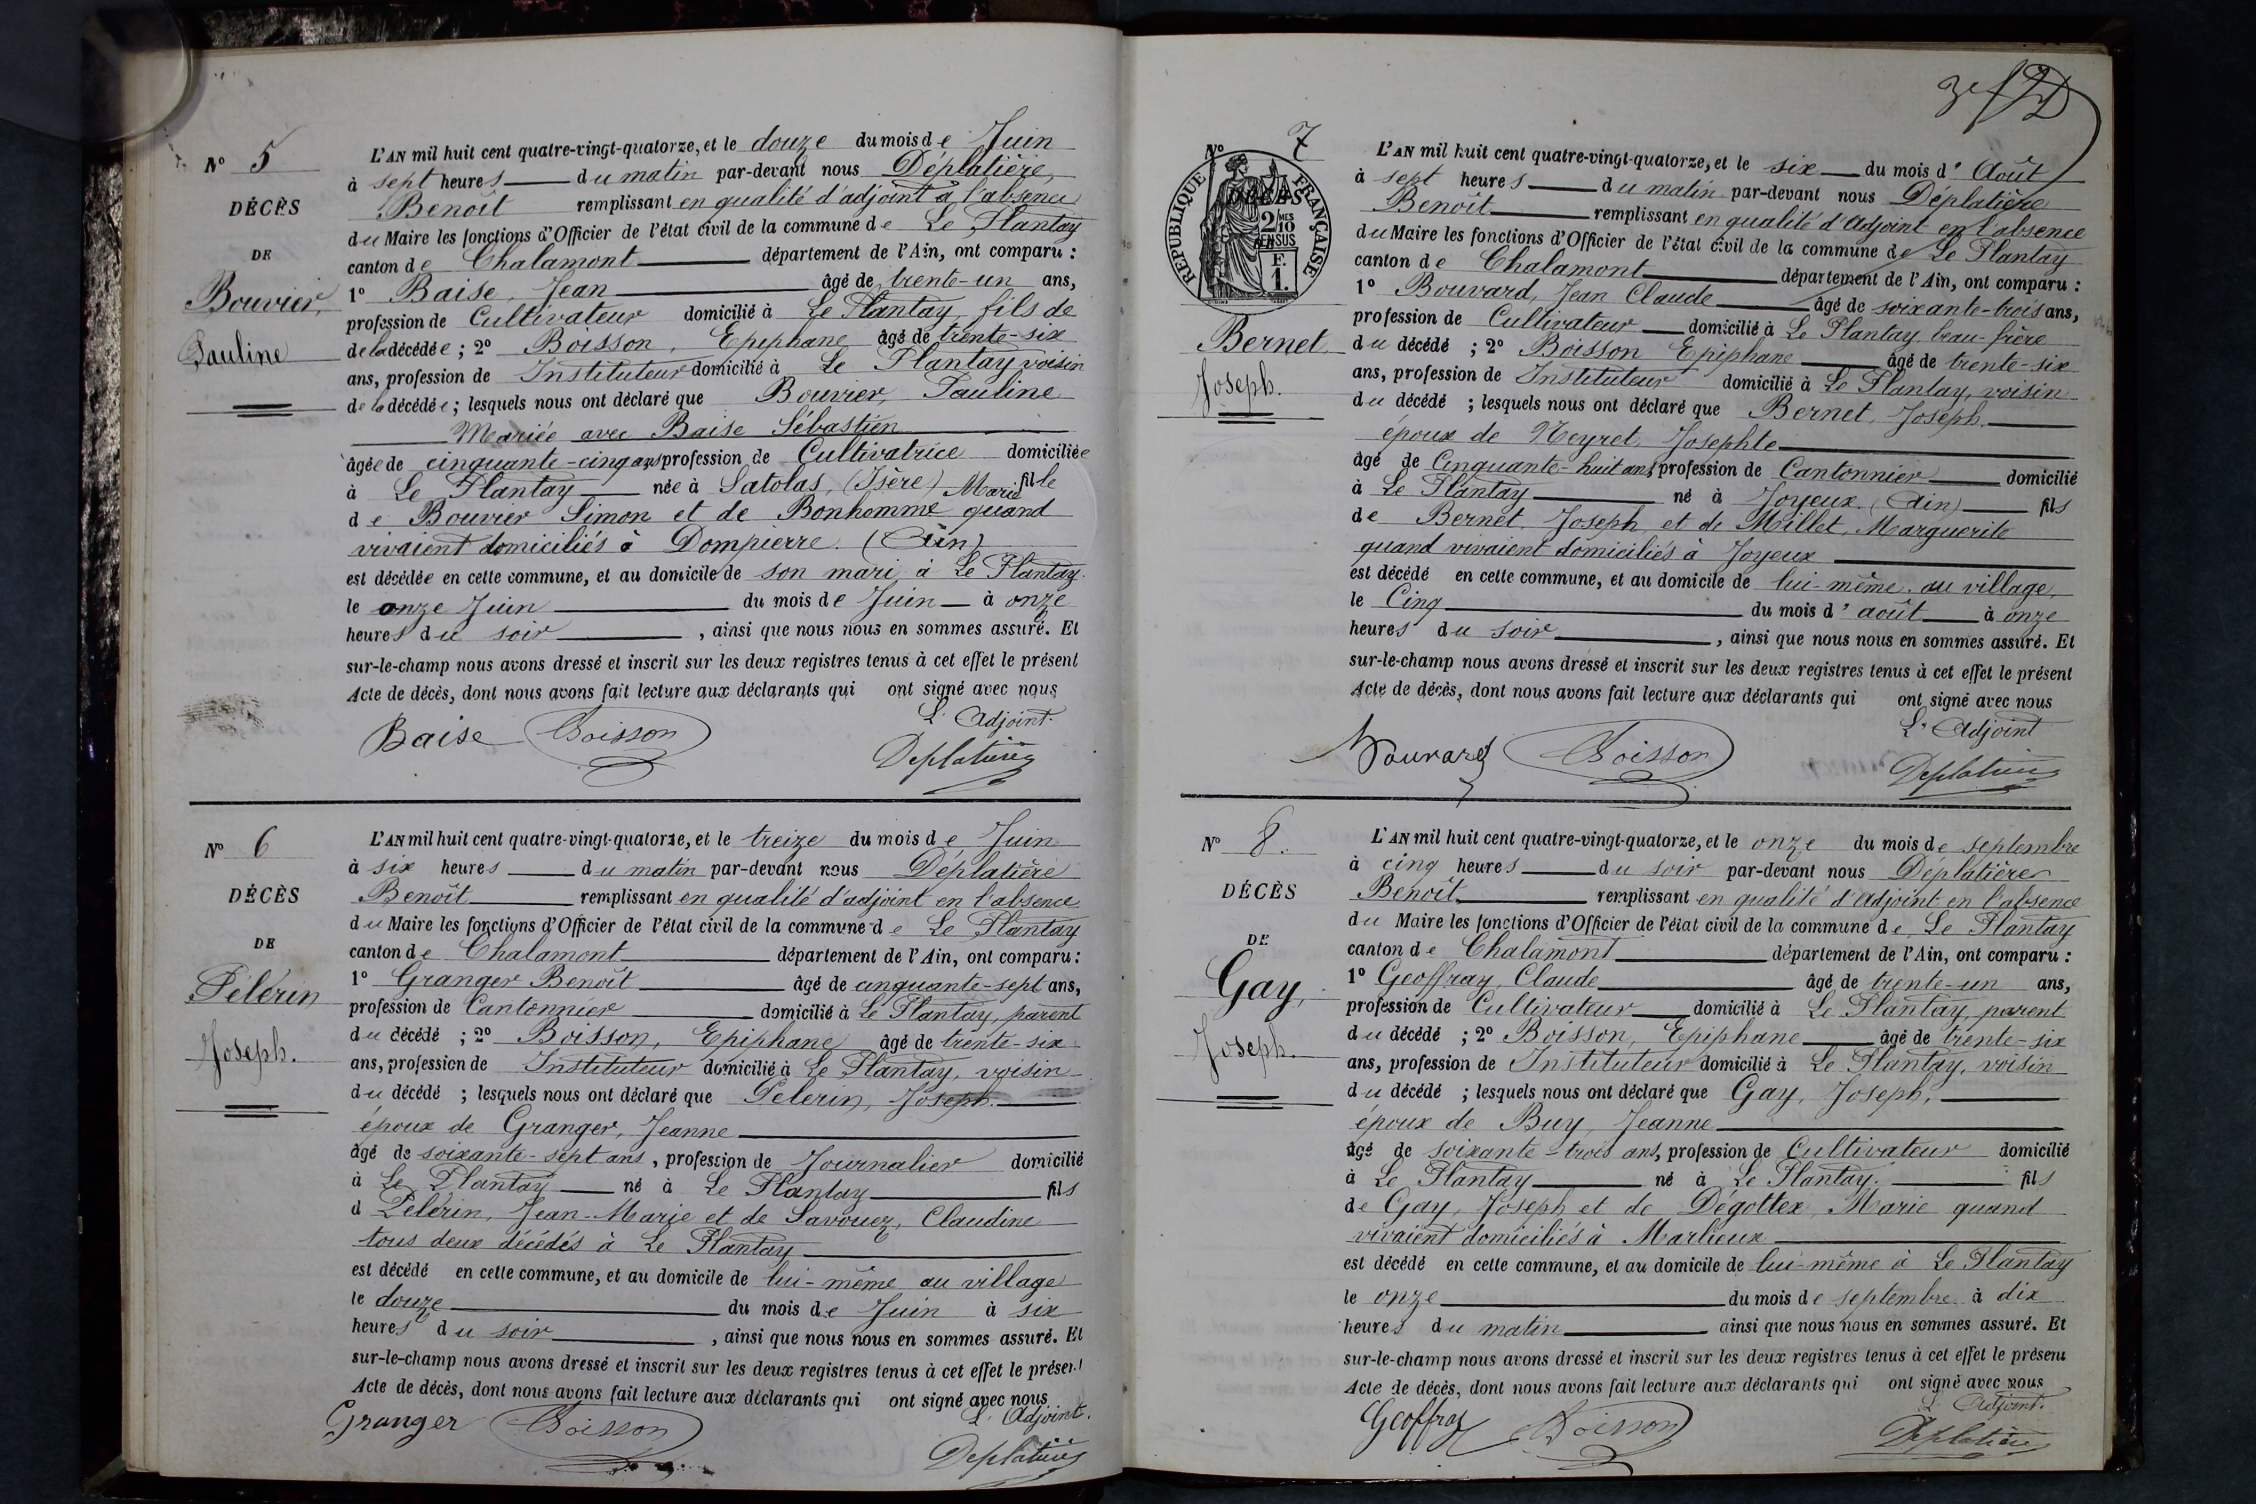 N° 5
DÉCÈS
DE
Bouvier,
Pauline
L'AN mil huit cent quatre-vingt-quatorze, et le douze du mois de Juin
à sept heures du matin par-devant nous Déplatière,
Benoit remplissant en qualité d'adjoint à l'absence
du Maire les fonctions d'Officier de l'état civil de la commune de Le Plantay
canton de Chalamont département de l'Ain, ont comparu :
1° Baise, Jean âgé de trente-un ans,
profession de Cultivateur domicilié à Le Plantay, fils de
de la décédée ; 2° Boisson, Epiphane âgé de trente-six
ans, profession de Instituteur domicilié à Le Plantay voisin
de la décédée ; lesquels nous ont déclaré que Bouvier, Pauline
Mariée avec Baise Sébastien
âgée de cinquante-cinq ans profession de Cultivatrice domiciliée
à Le Plantay née à Satolas, (Isère) fille
de Bouvier Simon et de Bonhomme Marie quand
vivaient domiciliés à Dompierre. (Ain)
est décédée en cette commune, et au domicile de son mari à Le Plantay.
le onze Juin du mois de Juin à onze
heures du soir, ainsi que nous nous en sommes assuré. Et
sur-le-champ nous avons dressé et inscrit sur les deux registres tenus à cet effet le présent
Acte de décès, dont nous avons fait lecture aux déclarants qui ont signé avec nous
L'Adjoint.
Baise Boisson Deplatière
N° 6
DÉCÈS
DE
Pélérin
Joseph.
L'AN mil huit cent quatre-vingt-quatorze, et le treize du mois de Juin
à six heures du matin par-devant nous Déplatière
Benoît remplissant en qualité d'adjoint en l'absence
du Maire les fonctions d'Officier de l'état civil de la commune de Le Plantay
canton de Chalamont département de l'Ain, ont comparu :
1° Granger Benoît âgé de cinquante-sept ans,
profession de Cantonnier domicilié à Le Plantay, parent
du décédé ; 2° Boisson, Epiphane âgé de trente-six
ans, profession de Instituteur domicilié à Le Plantay, voisin
du décédé ; lesquels nous ont déclaré que Pelerin, Joseph.
époux de Granger, Jeanne
âgé de soixante-sept ans, profession de Journalier domicilié
à Le Plantay né à Le Plantay fils
d Pélérin, Jean-Marie et de Savouez, Claudine
tous deux décédés à Le Plantay
est décédé en cette commune, et au domicile de lui-même au village
le douze du mois de Juin à six
heures du soir, ainsi que nous nous en sommes assuré. Et
sur-le-champ nous avons dressé et inscrit sur les deux registres tenus à cet effet le présent
Acte de décès, dont nous avons fait lecture aux déclarants qui ont signé avec nous
L'Adjoint.
Granger Boisson Deplatière
N° 7
REPUBLIQUE FRANÇAISE
2 MES 10
EN SUS
F. 1.
Bernet
Joseph.
L'AN mil huit cent quatre-vingt-quatorze, et le six du mois d'Août
à sept heures du matin par-devant nous Déplatière
Benoît remplissant en qualité d'Adjoint en l'absence
du Maire les fonctions d'Officier de l'état civil de la commune de Le Plantay
canton de Chalamont département de l'Ain, ont comparu :
1° Bouvard, Jean Claude âgé de soixante-trois ans,
profession de Cultivateur domicilié à Le Plantay beau-frère
du décédé ; 2° Boisson Epiphane âgé de trente-six
ans, profession de Instituteur domicilié à Le Plantay, voisin
du décédé ; lesquels nous ont déclaré que Bernet, Joseph.
époux de Neyret, Josephte
âgé de Cinquante-huit ans, profession de Cantonnier domicilié
à Le Plantay né à Joyeux (Ain) fils
de Bernet, Joseph et de Millet, Marguerite
quand vivaient domiciliés à Joyeux
est décédé en cette commune, et au domicile de lui-même, au village,
le Cinq du mois d'août à onze
heures du soir, ainsi que nous nous en sommes assuré. Et
sur-le-champ nous avons dressé et inscrit sur les deux registres tenus à cet effet le présent
Acte de décès, dont nous avons fait lecture aux déclarants qui ont signé avec nous
L'Adjoint
Bouvard Boisson Deplatière
N° 8.
DÉCÈS
DE
Gay,
Joseph.
L'AN mil huit cent quatre-vingt-quatorze, et le onze du mois de septembre
à cinq heures du soir par-devant nous Déplatière
Benoît remplissant en qualité d'Adjoint en l'absence
du Maire les fonctions d'Officier de l'état civil de la commune de Le Plantay
canton de Chalamont département de l'Ain, ont comparu :
1° Geoffray, Claude âgé de trente-un ans,
profession de Cultivateur domicilié à Le Plantay, parent
du décédé ; 2° Boisson, Epiphane âgé de trente-six
ans, profession de Instituteur domicilié à Le Plantay, voisin
du décédé ; lesquels nous ont déclaré que Gay, Joseph,
époux de Buy, Jeanne
âgé de soixante-trois ans, profession de Cultivateur domicilié
à Le Plantay né à Le Plantay. fils
de Gay, Joseph et de Dégottex, Marie quand
vivaient domiciliés à Marlieux
est décédé en cette commune, et au domicile de lui-même à Le Plantay
le onze du mois de septembre à dix
heures du matin ainsi que nous nous en sommes assuré. Et
sur-le-champ nous avons dressé et inscrit sur les deux registres tenus à cet effet le présent
Acte de décès, dont nous avons fait lecture aux déclarants qui ont signé avec nous
L'Adjoint.
Geoffray Boisson Deplatière